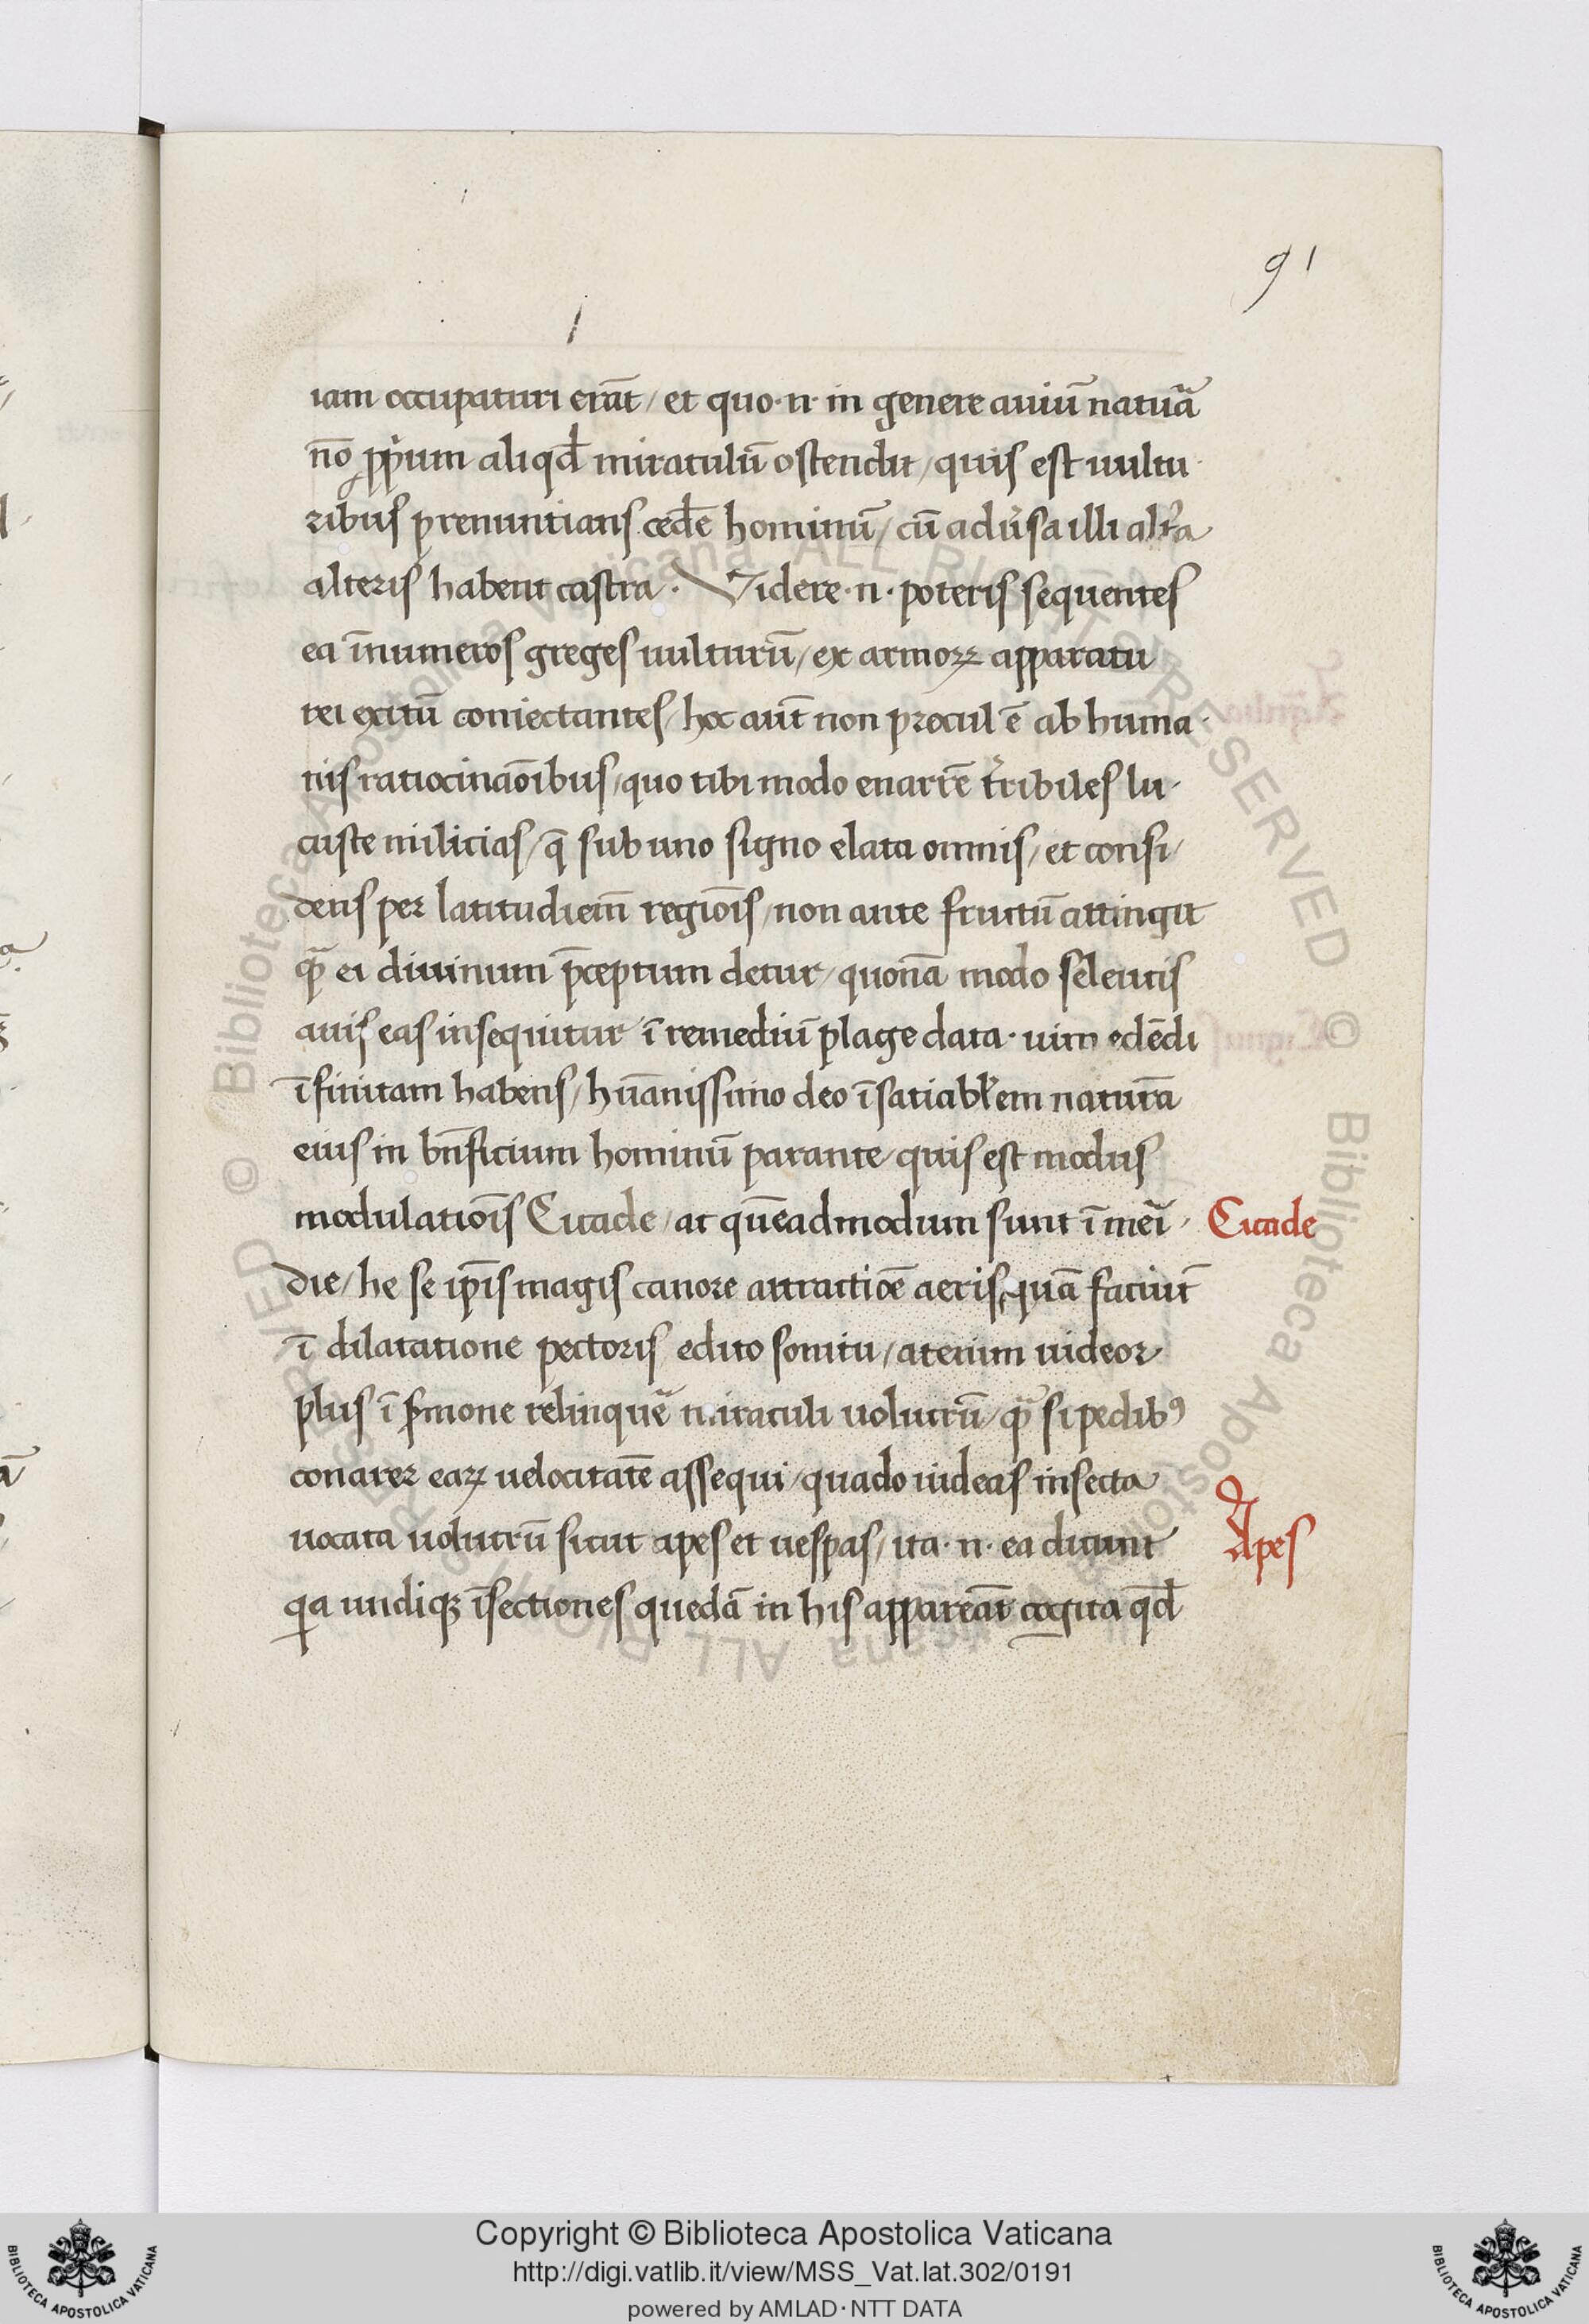 91
iam occupaturi erāt / et quo·n· in genere auiū natuā
nō ꝓpium aliqd̄ miraculū ostendit / quis est uultu
ribus prenuntians cedē hominū / cū aduˀsa illi altˀa
alteris habent castra · Videre·n·poteris sequentes
ea īnumeros greges uulturū / ex armoꝝ apparatu
rei exitū coniectantes / hoc aut̄ non procul ē ab huma·
nis ratiocinaōībus / quo tibi modo enarrē tˀribiles lu·
custe milicias / q̄ sub uno signo elata omnis / et consi /
dens per latitudiem̄ regiōis / non ante fructū attingit
qᷓ ei diuinum p̄ceptum detur / quonā modo seleucis
auis eas insequitur ī remediū plage data · uim edēdi
īfinitam habens / hūanissimo deo īsatiabl̄em naturā
eius in bn̄ficium hominū parante / quis est modus
modulatiōis Cicade / ac quēadmodum sunt ī meī ·
Cicade
die / he se ip̄is magis canore attractiōē aeris, quā faciūt
ī dilatatione pectoris edito sonitu / atenim uideor
plus ī ẜmone relinquē miraculi uolucrū / qᷓ si pedibꝰ
conarer eaꝝ uelocitatē assequi / quado uideas insecta
uocata uolucrū sicut apes et uespas / ita·n· ea dicunt
Apes
qa undiqꝫ īsectiones quedā in his appareāt cogita qd̄
Copyright © Biblioteca Apostolica Vaticana
http://digi.vatlib.it/view/MSS_Vat.lat.302/0191
powered by AMLAD·NTT DATA
BIBLIOTECA APOSTOLICA VATICANA
BIBLIOTECA APOSTOLICA VATICANA